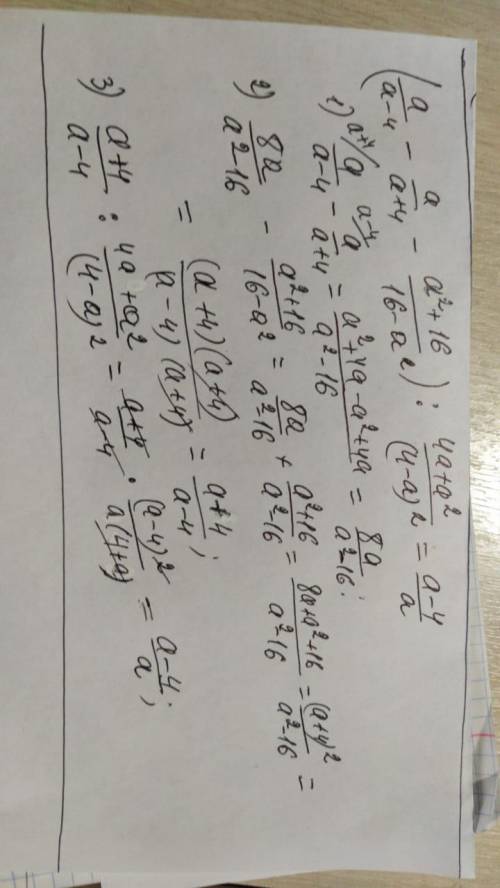 (a/(a-4) - a/(a+4) - (a²+16)/(16-a²)) : (4a+a²)/(4-a)² = (a-4)/a
1) a+4/ a/(a-4) - a-4/ a/(a+4) = (a²+4a-a²+4a)/(a²-16) = 8a/(a²-16);
2) 8a/(a²-16) - (a²+16)/(16-a²) = 8a/(a²-16) + (a²+16)/(a²-16) = (8a+a²+16)/(a²-16) = (a+4)²/(a²-16) =
= (a+4)(a+4)/((a-4)(a+4)) = (a+4)/(a-4);
3) (a+4)/(a-4) : (4a+a²)/(4-a)² = (a+4)/(a-4) · (a-4)²/(a(4+a)) = (a-4)/a;